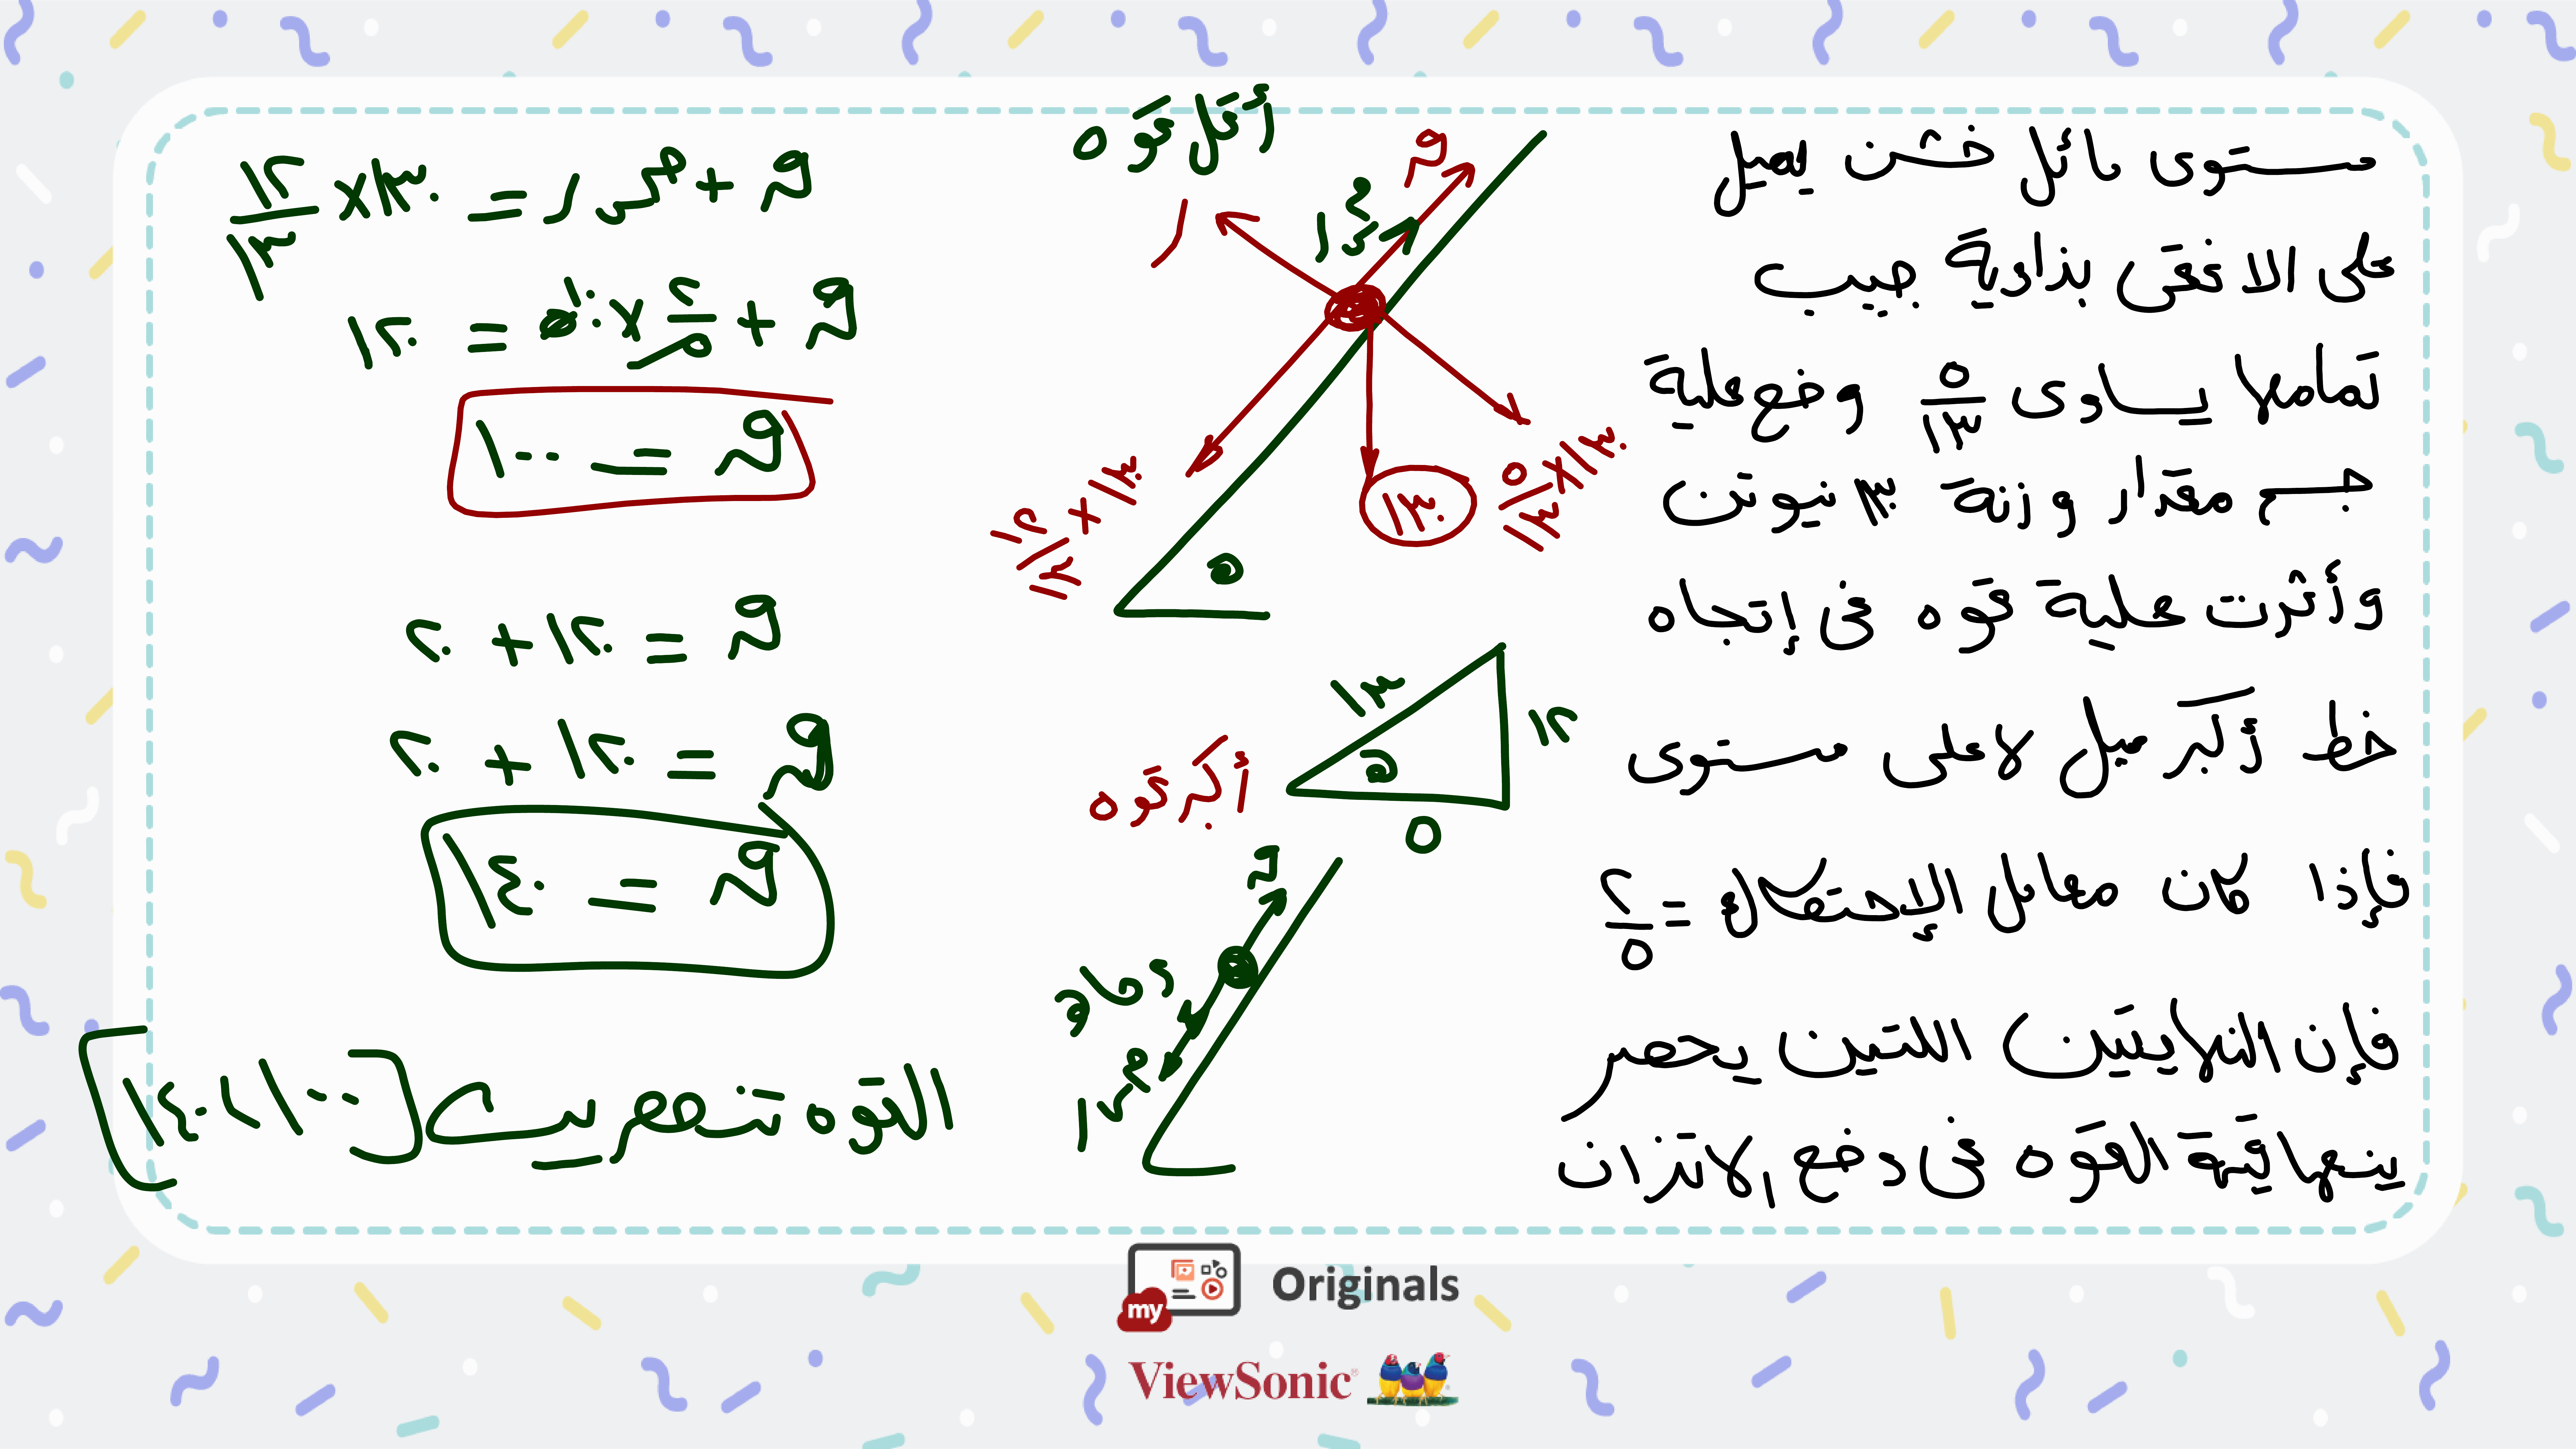 مستوى مائل خشن يميل
على الافقى بذاوية جيب
تمامها يساوى ٥/١٣ وضع علية
جسم مقدار وزنة ١٣٠ نيوتن
وأثرت علية قوه فى إتجاه
خط أكبر ميل لاعلى مستوى
فإذا كان معامل الإحتكاك = ٢/٥
فإن النهايتين اللتين يحصر
بينهما قيمة القوه فى وضع الاتزان
أقل قوه
ق
ر
١٣٠
٥/١٣ × ١٣٠
١٢/١٣ × ١٣٠
هـ
١٣
١٢
هـ
٥
أكبر قوه
ق
و حا هـ
ق + م س ر = ١٣٠ × ١٢/١٣
ق + ٢/٥ × ٥٠ = ١٢٠
ق = ١٠٠
ق = ١٢٠ + ٢٠
ق = ١٢٠ + ٢٠
ق = ١٤٠
القوه تنحصر بين [١٠٠ ، ١٤٠]
my Originals
ViewSonic